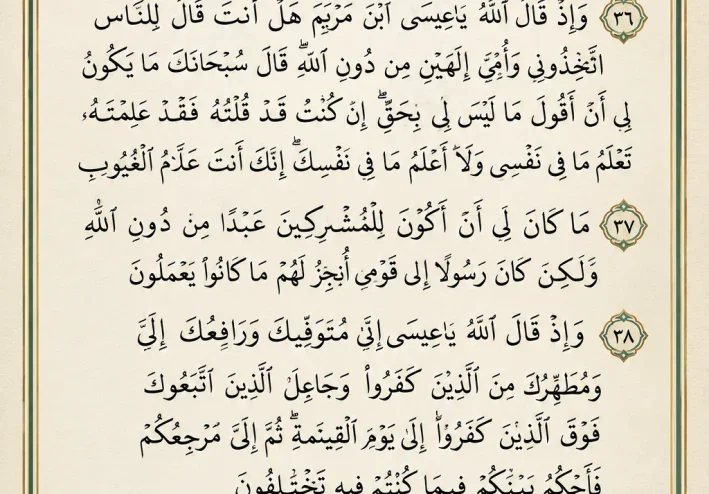 ٣٦ وَإِذْ قَالَ ٱللَّهُ يَاعِيسَى ٱبْنَ مَرْيَمَ هَلْ أَنتَ قَالَ لِلنَّاسِ
اتَّخِذُونِي وَأُمِّيَ إِلَهَيْنِ مِن دُونِ ٱللَّهِ ۖ قَالَ سُبْحَانَكَ مَا يَكُونُ
لِي أَنْ أَقُولَ مَا لَيْسَ لِي بِحَقٍّ ۖ إِنْ كُنْتُ قَدْ قُلْتُهُ فَقَدْ عَلِمْتَهُۥ
تَعْلَمُ مَا فِي نَفْسِى وَلَآ أَعْلَمُ مَا فِي نَفْسِكَ ۖ إِنَّكَ أَنتَ عَلَّامُ ٱلْغُيُوبِ
٣٧ مَا كَانَ لِي أَنْ أَكُوْنَ لِلْمُشْرِكِينَ عَبْدًا مِنْ دُونِ ٱللَّهِ
وَّلَكِنَ كَانَ رَسُولًا إِلى قَوْمِي أُنجِزُ لَهُمْ مَا كَانُواْ يَعْمَلُونَ
٣٨ وَإِذْ قَالَ ٱللَّهُ يَاعِيسَى إِنِّى مُتَوَفِّيكَ وَرَافِعُكَ إِلَيَّ
وَمُطَهِّرُكَ مِنَ ٱلَّذِيْنَ كَفَرُواْ وَجَاعِلَ ٱلَّذِينَ ٱتَّبَعُوكَ
فَوْقَ ٱلَّذِيْنَ كَفَرُوْاْ إِلَىٰ يَوْمِ ٱلْقِينَمةِ ۖ ثُمَّ إِلَىَّ مَرْجِعُكُمْ
فَأَحْكُمُ بَيْنَكُمْ فِيمَا كُنْتُمْ فِيهِ تَخْتَلِفُونَ